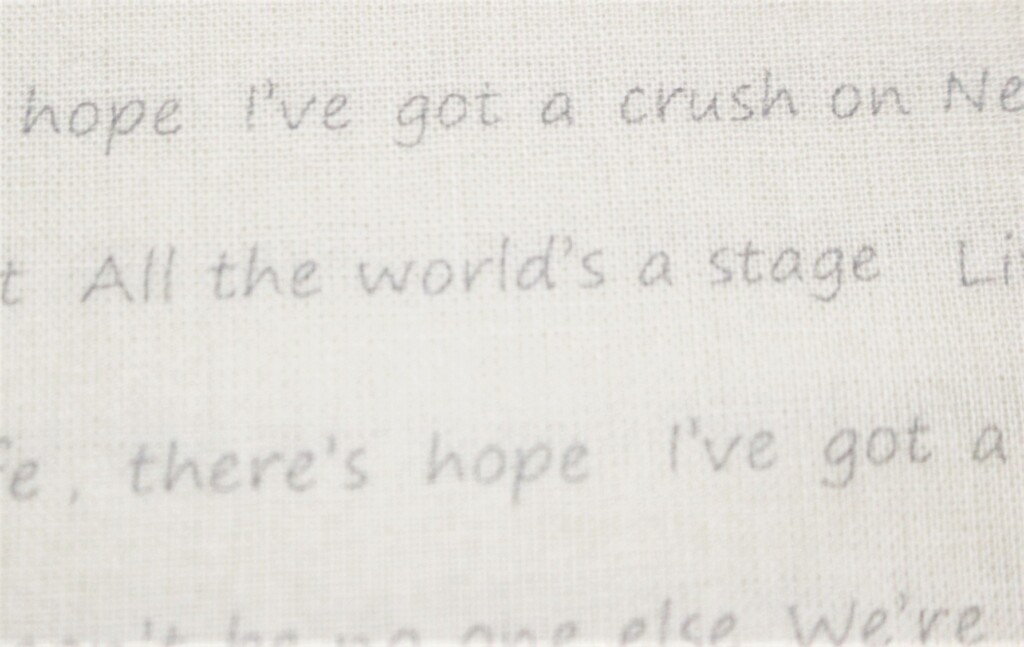 hope I've got a crush on Ne
t All the world's a stage Li
e, there's hope I've got a
be no one else We're